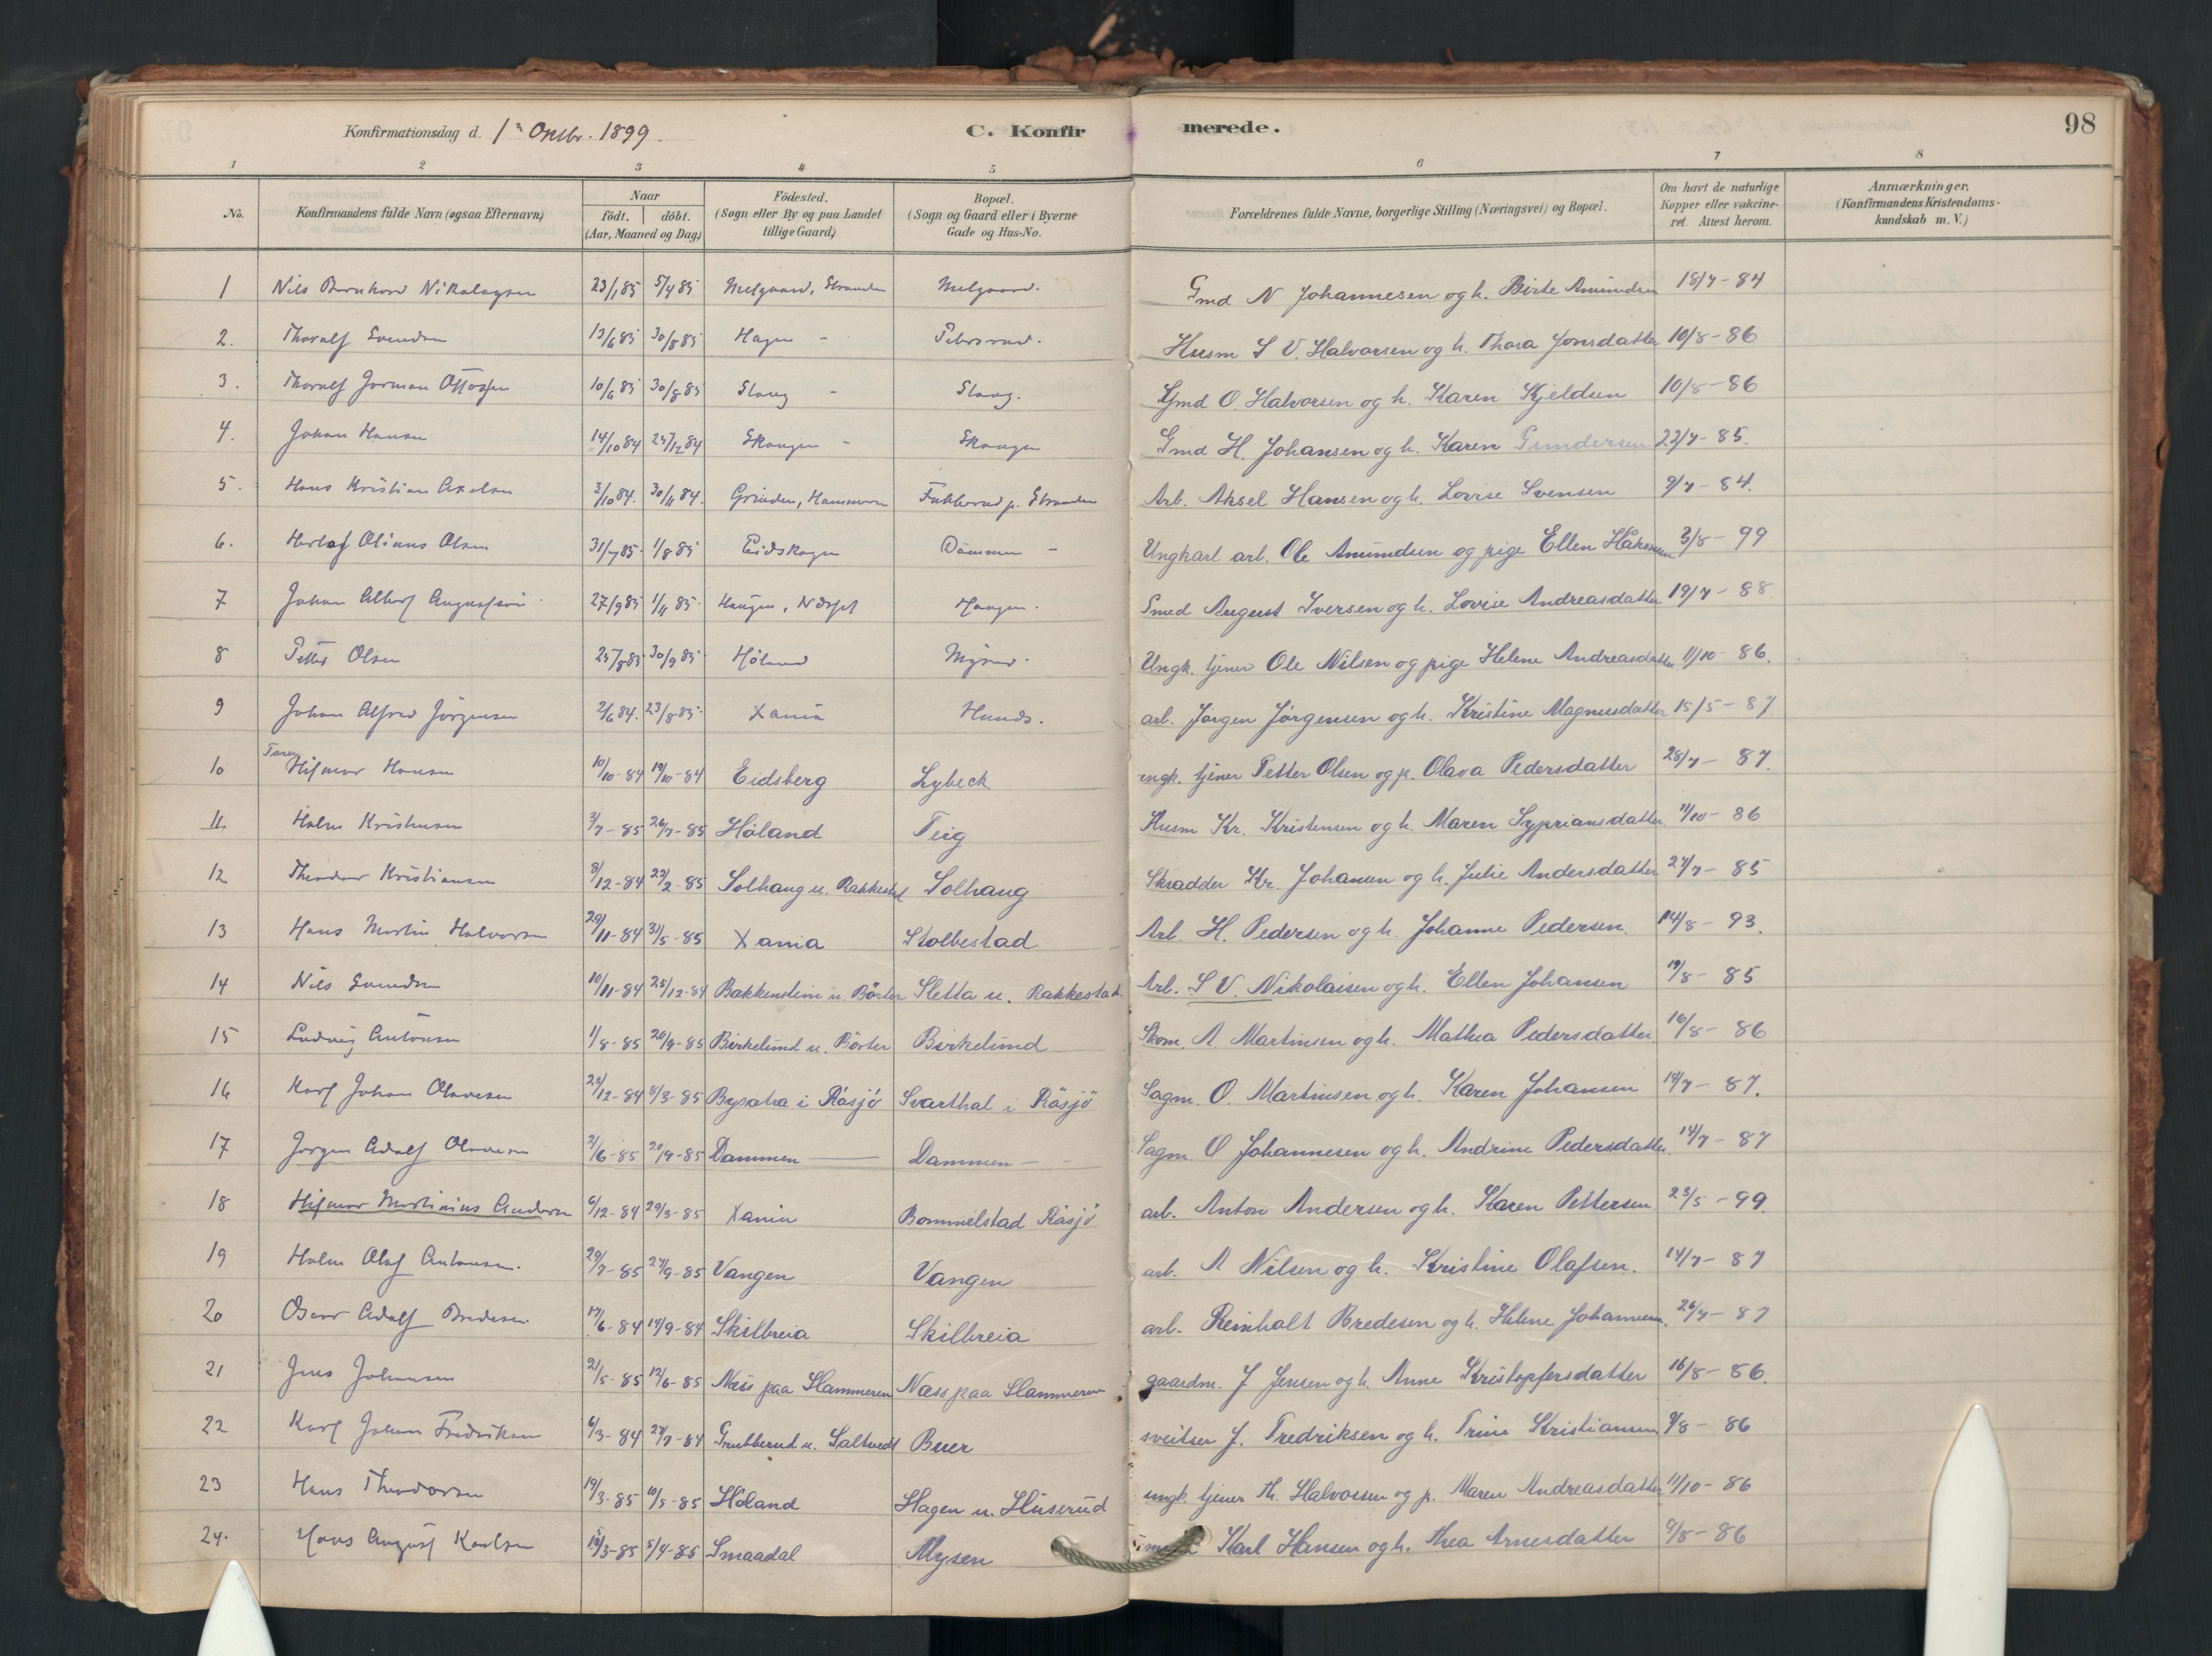 Konfirmationsdag d. 1 Octbr. 1899.
C. Konfirmerede.
98
1 2 3 4 5 6 7 8
No.
Konfirmandens fulde Navn (ogsaa Efternavn)
Naar
födt. döbt.
(Aar, Maaned og Dag.)
Födested.
(Sogn eller By og paa Landet
tillige Gaard)
Bopæl.
(Sogn og Gaard eller i Byerne
Gade og Hus-No.
Forældrenes fulde Navne, borgerlige Stilling (Næringsvei) og Bopæl.
Om havt de naturlige
Kopper eller vakcine-
ret. Attest herom.
Anmærkninger.
(Konfirmandens Kristendoms-
kundskab m. V.)
1 Nils Bernhard Nikolaysen 23/1 85 5/4 85 Melgaard, Melgaard. Gmd N Johannesen og h. Birte Amundsen 18/7-84
2. Thoralf 13/6 85 30/8 85 Hagen - Husm S V. Halvorsen og h. Thora Jonsdatter 10/8-86
3. Thoralf Gorman 10/6 85 30/8 85 - Gmd O. Halvorsen og h. Karen Kjeldsen 10/8-86
4. Johan Hansen 14/10 84 Skaugen - Skaugen Gmd H. Johansen og h. Karen Gundersen 22/7-85.
5. Hans Kristian Axelsen 2/10 84. 30/11 84. Grinden, Arb. Aksel Hansen og h. Lovise Svensen 9/7-84.
6. Olsen 31/7 85 1/8 85 Eidskogen Dammen - Ungkarl arb. Ole Amundsen og pige Ellen 3/8-99
7 Johan Albert 27/9 85 1/11 85 Haugen, Haugen. Smed August Iversen og h. Lovise Andreasdatter 19/7-88.
8 Petter Olsen 25/8 85 30/9 85 Høland Ungk. tjener Ole Nilsen og pige Helene Andreasdatter 11/10-86.
9 Johan Alfred Jörgensen 2/6 84. 23/8 85 Xania arb. Jörgen Jörgensen og h. Kristine Magnusdatter 15/5-87
10 Hjmar Hansen 10/10-84 19/10-84 Eidsberg Lybeck ungk. tjener Petter Olsen og p. Olava Pedersdatter 28/7-87.
11 Holm Kristensen 3/7-85 26/7-85 Höland Teig Husm Kr. Kristensen og h. Maren Sypriansdatter 11/10-86
12 Theodor Kristiansen 8/12-84 22/2-85 Solhaug u. Rakkestad Solhaug Skradder Kr. Johansen og h. Julie Andersdatter 27/7-85
13 Hans Martin Halvorsen 29/11-84 31/5-85 Xania Stolbestad Arb. H. Pedersen og h. Johanne Pedersen. 14/8-93.
14 Nils 10/11-84 25/12-84 u. Börter Sletta u. Rakkestad Arb. S V. Nikolaisen og h. Ellen Johansen 19/8-85
15 Ludvig Antonsen 1/8-85 20/9-85 Birkelund u. Börter Birkelund Skom. A Martinsen og h. Mathea Pedersdatter 16/8-86
16 Karl Johan Olavesen 25/12-84 8/3-85 i Räsjö Svarthal i Räsjö Sagm. O. Martinsen og h. Karen Johansen 14/7-87.
17 Jörgen Adolf Olavesen 2/6-85 20/9-85 Dammen Dammen - Sagm. O Johannesen og h. Andrine Pedersdatter 14/7-87
18 Hjmar Martinius Andersen 6/12-84 29/3-85 Xania Bommelstad Räsjö arb. Anton Andersen og h. Karen Pettersen 25/5-99.
19 Holm Olaf Antonsen. 29/7-85 27/9-85 Vangen Vangen arb. A Nilsen og h. Kristine Olafsen. 14/7-87
20 Oscar Adolf Bredesen 17/6-84 14/9-84 Skilbreia Skilbreia arb. Reinholt Bredesen og h. Helene Johannesen. 26/7-87
21 Jens Johansen 21/5-85 12/6-85 Næss paa Slammeren Næss paa Slammeren gaardm. J Jensen og h. Anne Kristopfersdatter 16/8-86.
22 Karl Johan Fredriksen 6/3-84 27/7-84 Grubberud u. Saltvedt Buer sveitser J. Fredriksen og h. Trine Kristiansen 9/8-86
23 Hans Theodorsen 19/3-85 10/5-85 Höland Hagen u. Huserud ungk. tjener Th. Halvorsen og p. Maren Andreasdatter 11/10-86
24. Hans August Karlsen 5/4-85 Smaadal Mysen Karl Hansen og h. Thea Arnesdatter 9/8-86